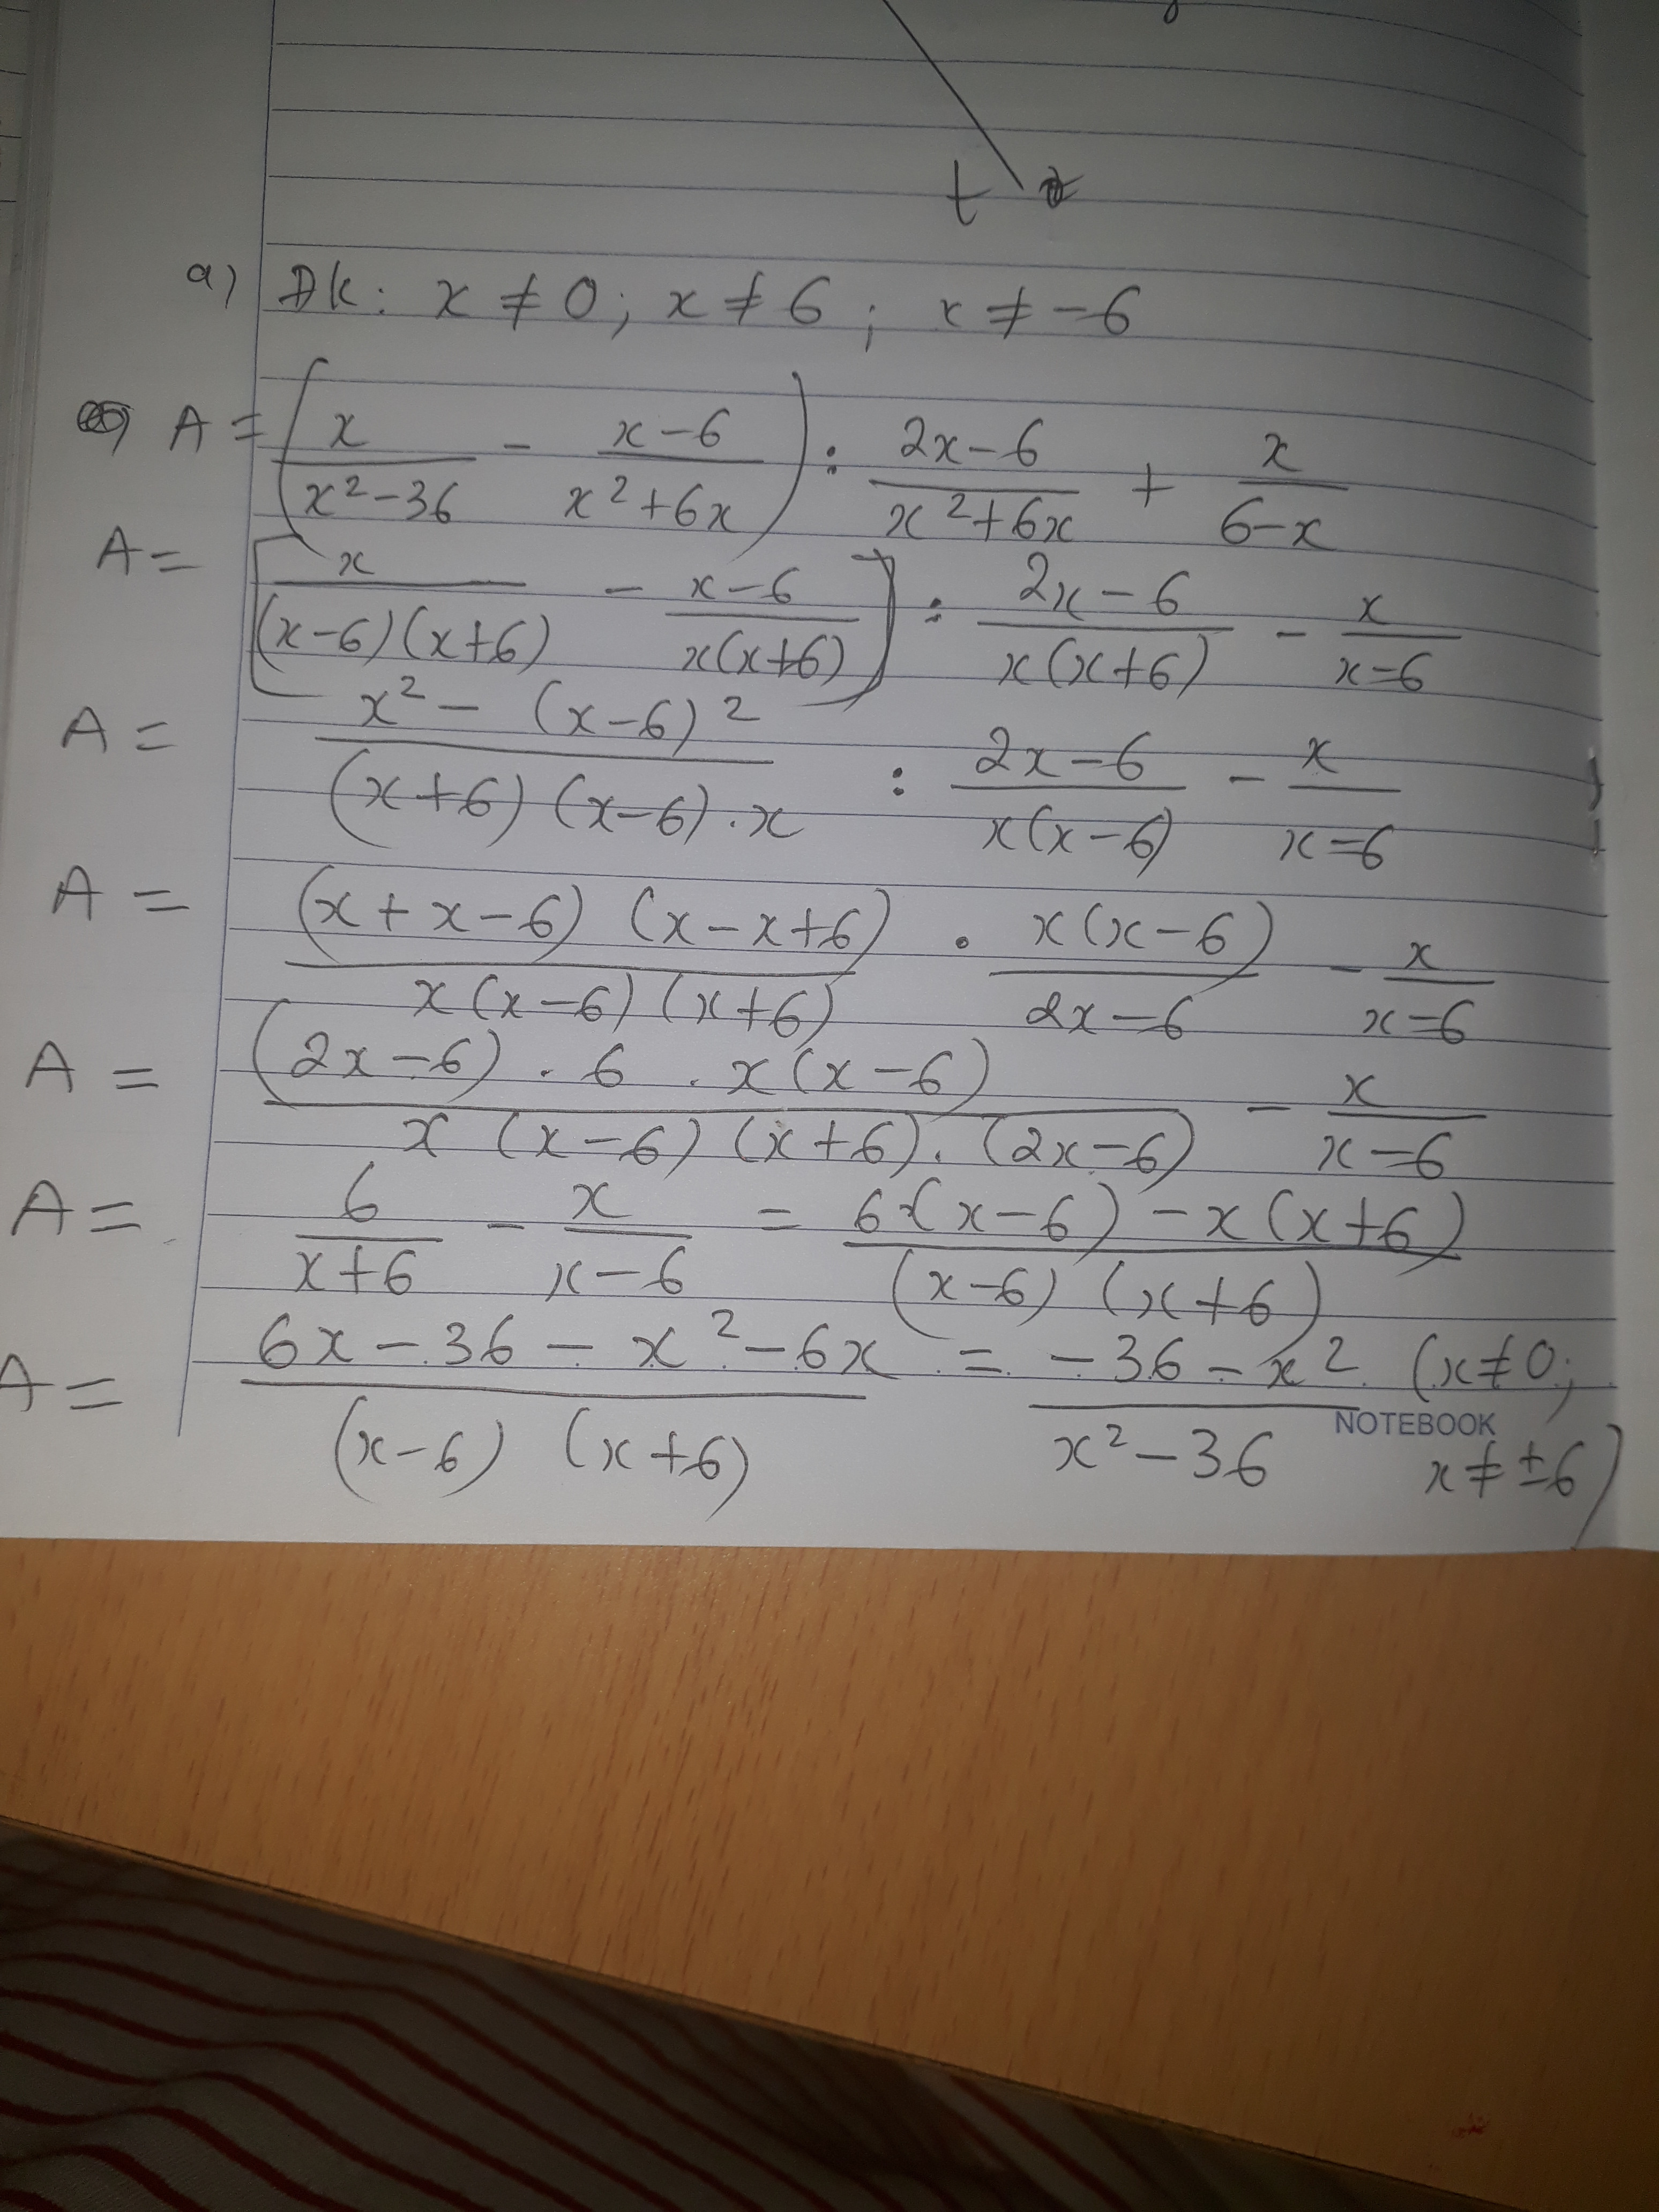 t
a) ĐK: x ≠ 0; x ≠ 6; x ≠ -6
A = (x/(x²-36) - (x-6)/(x²+6x)) : (2x-6)/(x²+6x) + x/(6-x)
A = [x/((x-6)(x+6)) - (x-6)/(x(x+6))] : (2x-6)/(x(x+6)) - x/(x-6)
A = (x² - (x-6)²)/((x+6)(x-6).x) : (2x-6)/(x(x-6)) - x/(x-6)
A = ((x+x-6)(x-x+6))/(x(x-6)(x+6)) . (x(x-6))/(2x-6) - x/(x-6)
A = ((2x-6).6.x(x-6))/(x(x-6)(x+6).(2x-6)) - x/(x-6)
A = 6/(x+6) - x/(x-6) = (6(x-6)-x(x+6))/((x-6)(x+6))
A = (6x-36-x²-6x)/((x-6)(x+6)) = (-36-x²)/(x²-36) (x≠0; x≠±6)
NOTEBOOK